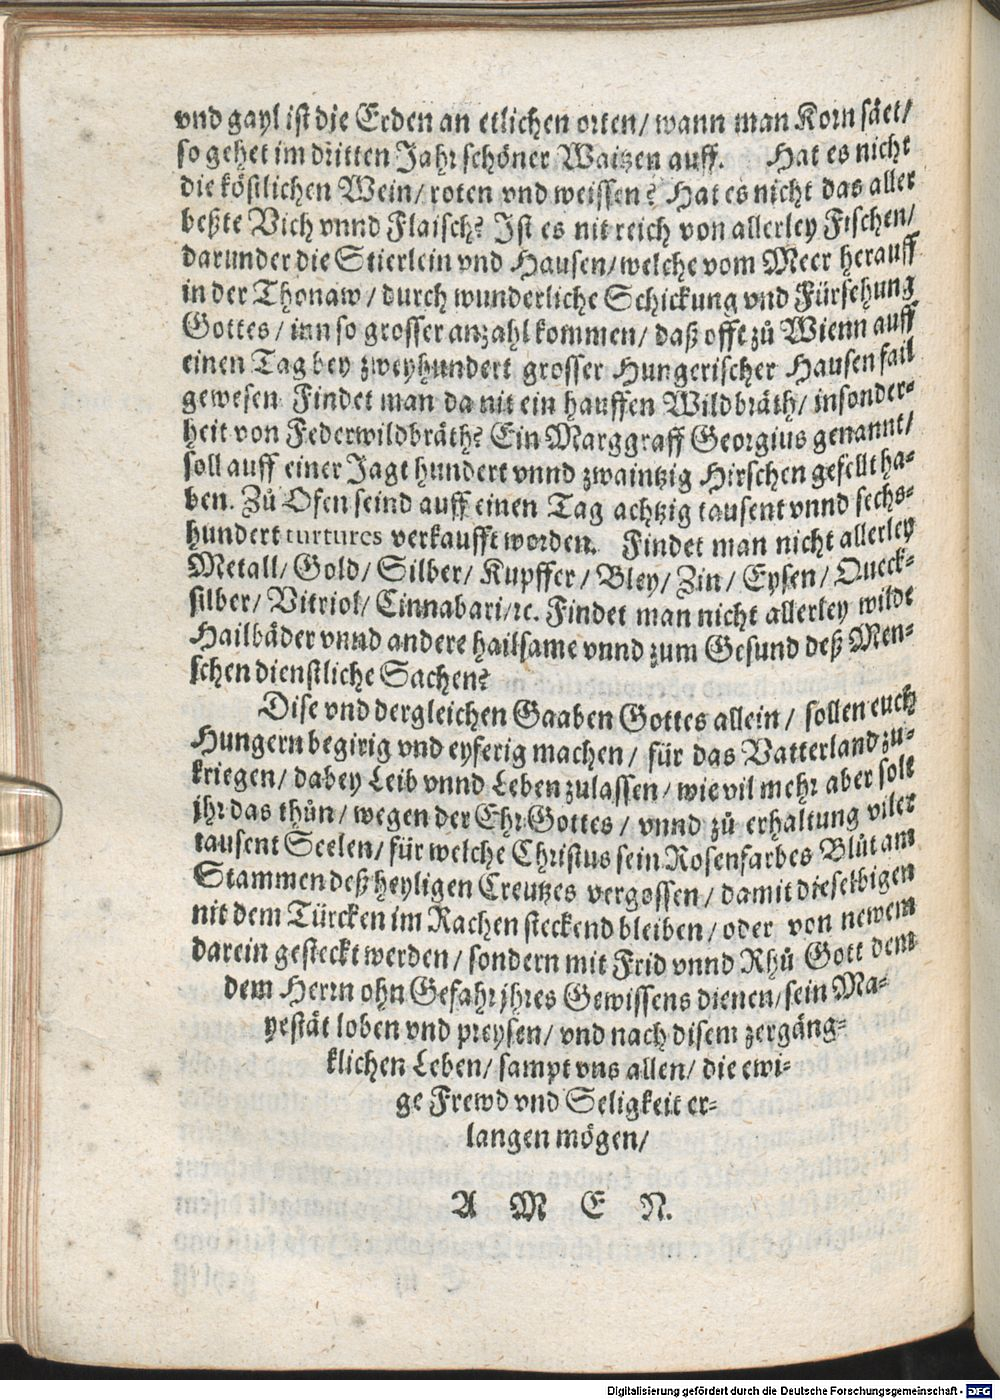 vnd gayl ist die Erden an etlichen orten/ wann man Korn säet/
so gehet im dritten Jahr schöner Waitzen auff. Hat es nicht
die köstlichen Wein/ roten vnd weissen? Hat es nicht das aller
beßte Vich vnnd Flaisch? Ist es nit reich von allerley Fischen/
darunder die Stierlein vnd Hausen/ welche vom Meer herauff
in der Thonaw/ durch wunderliche Schickung vnd Fürsehung
Gottes/ inn so grosser anzahl kommen/ daß offt zů Wienn auff
einen Tag bey zweyhundert grosser Hungerischer Hausen fail
gewesen Findet man da nit ein hauffen Wildbräth/ insonder-
heit von Federwildbräth? Ein Marggraff Georgius genannt/
soll auff einer Jagt hundert vnnd zwaintzig Hirschen gefellt ha-
ben. Zů Ofen seind auff einen Tag achtzig tausent vnnd sechs-
hundert turtures verkaufft worden. Findet man nicht allerley
Metall/ Gold/ Silber/ Kupffer/ Bley/ Zin/ Eysen/ Queck-
silber/ Vitriol/ Cinnabari/ ꝛc. Findet man nicht allerley wilde
Hailbäder vnnd andere hailsame vnnd zum Gesund deß Men-
schen dienstliche Sachen?
Dise vnd dergleichen Gaaben Gottes allein/ sollen euch
Hungern begirig vnd eyferig machen/ für das Vatterland zu-
kriegen/ dabey Leib vnnd Leben zulassen/ wie vil mehr aber solt
jhr das thůn/ wegen der Ehr Gottes/ vnnd zů erhaltung viler
tausent Seelen/ für welche Christus sein Rosenfarbes Blůt am
Stammen deß heyligen Creutzes vergossen/ damit dieselbigen
nit dem Türcken im Rachen steckend bleiben/ oder von newem
darein gesteckt werden/ sondern mit Frid vnnd Rhů Gott dem
dem Herrn ohn Gefahr jhres Gewissens dienen/ sein Ma-
yestät loben vnd preysen/ vnd nach disem zergäng-
klichen Leben/ sampt vns allen/ die ewi-
ge Frewd vnd Seligkeit er-
langen mögen/
A M E N.
Digitalisierung gefördert durch die Deutsche Forschungsgemeinschaft - DFG